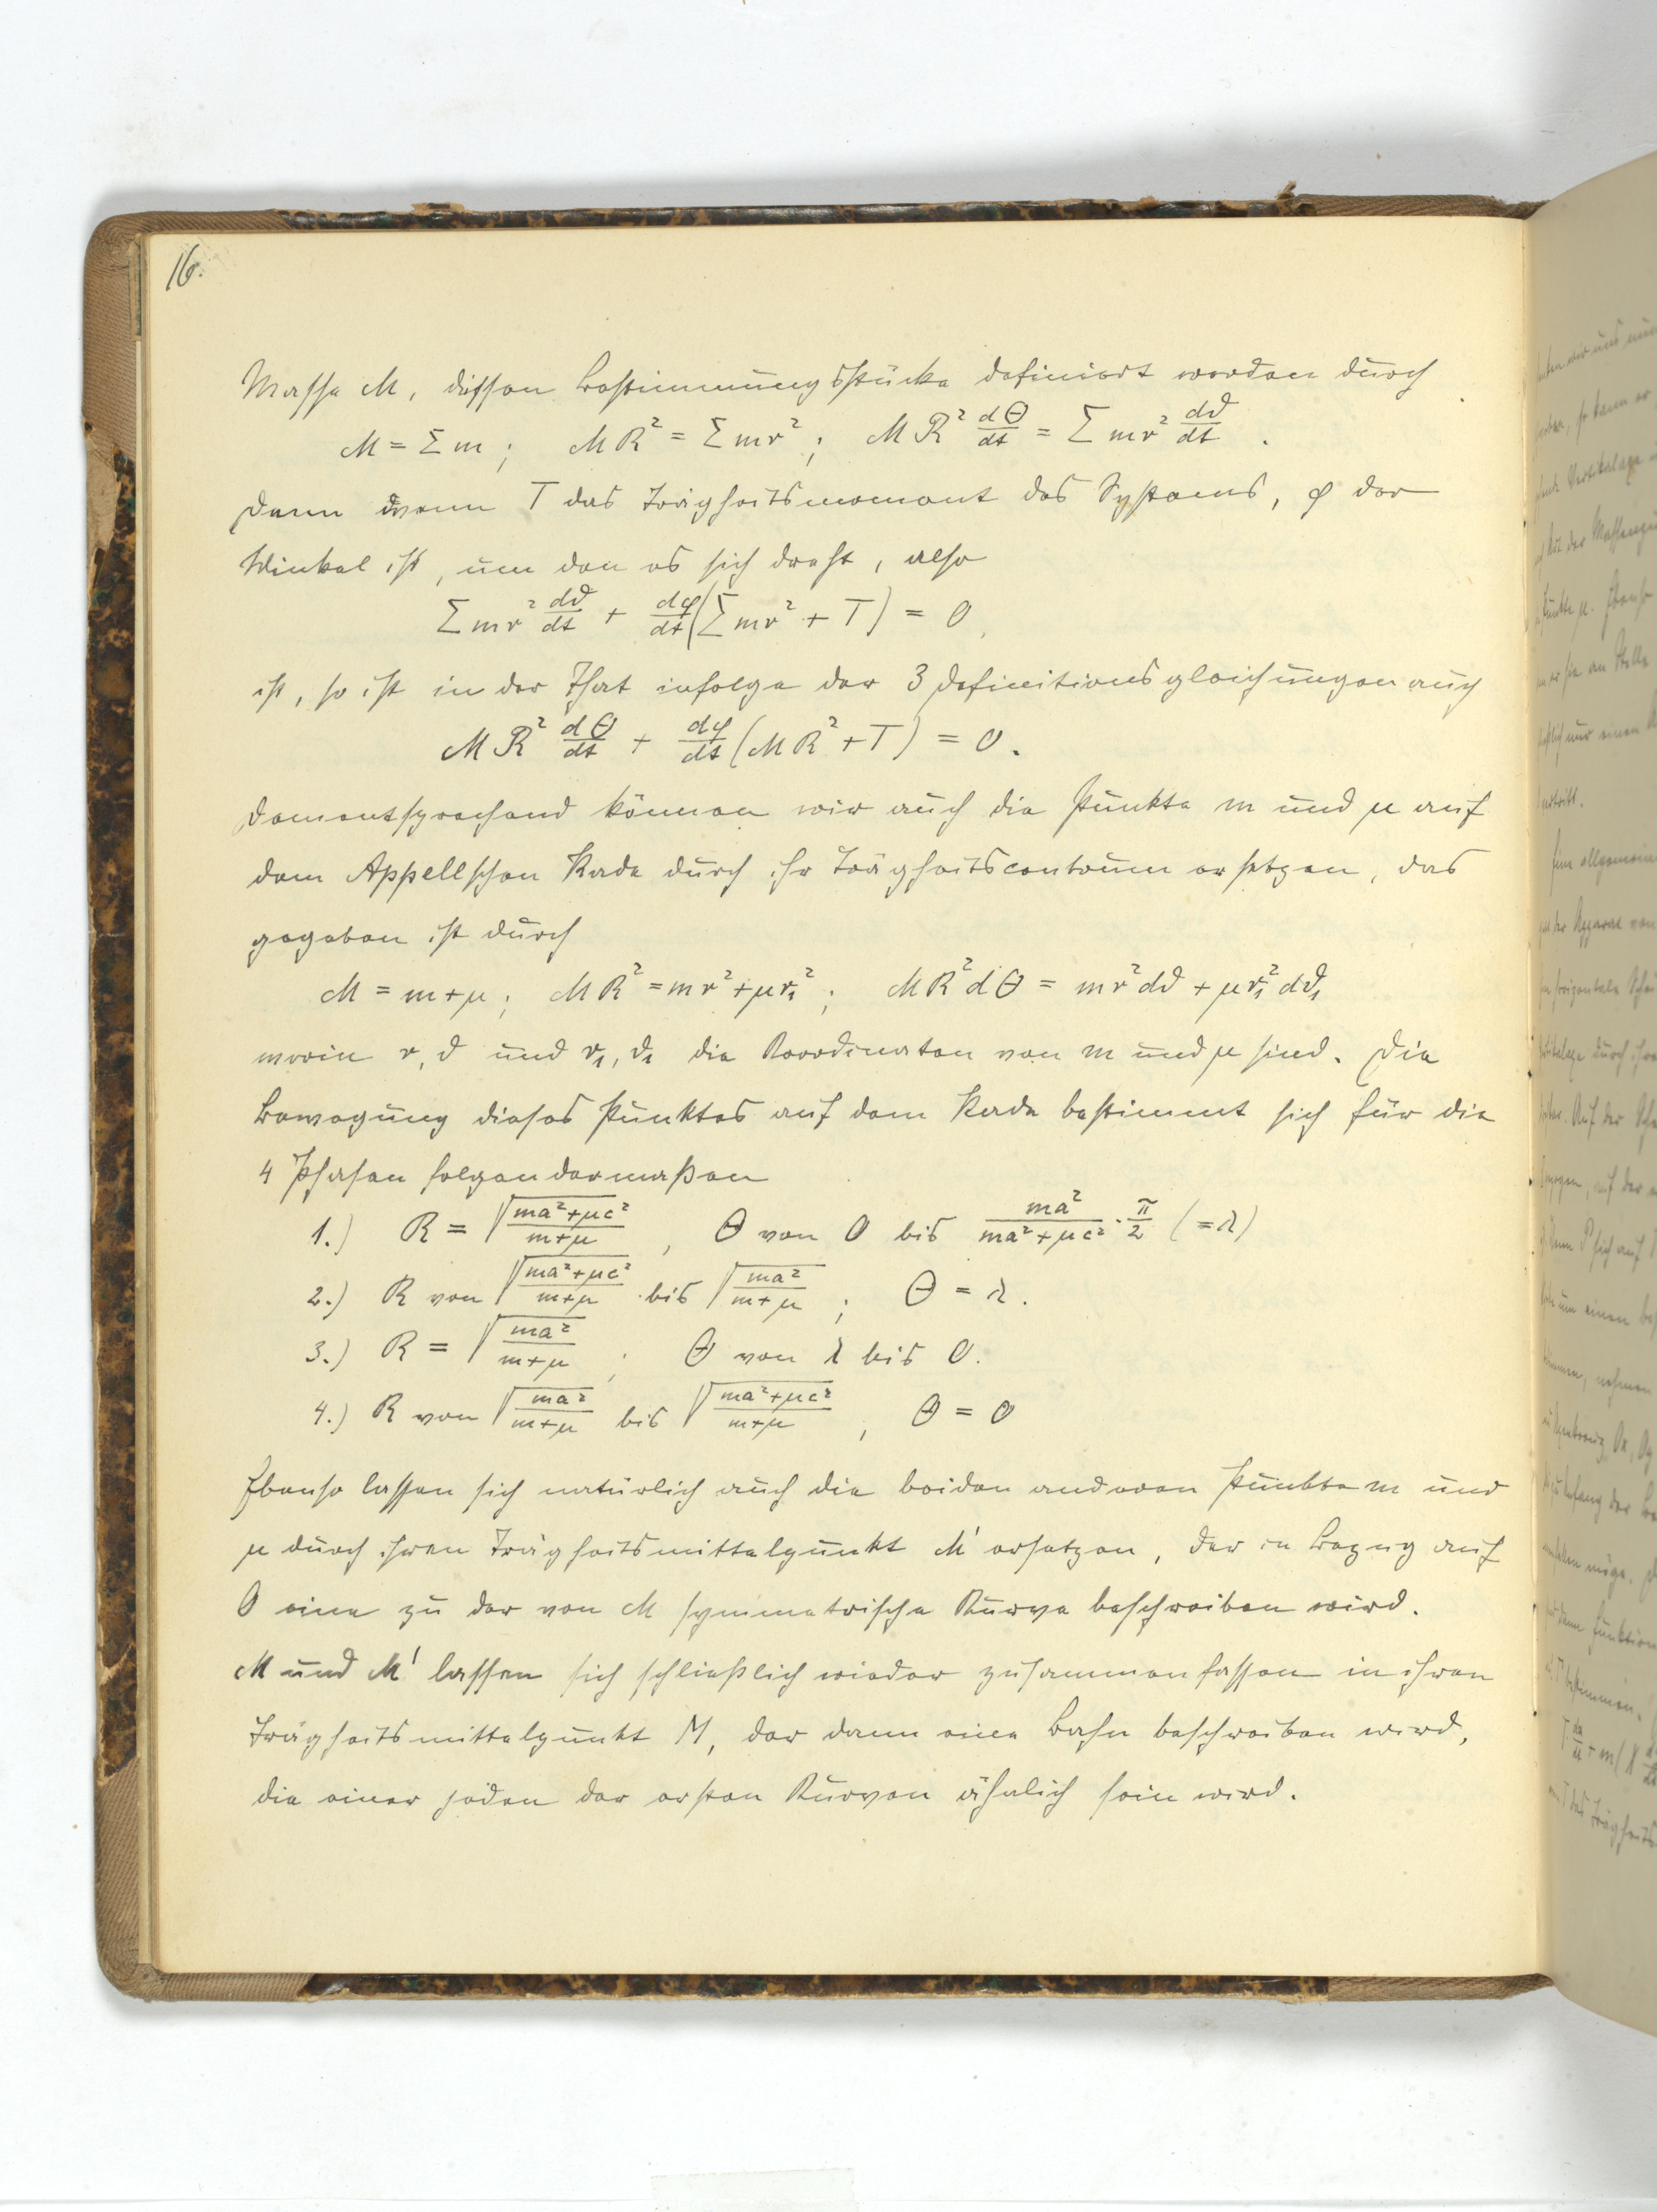 16.
Masse M, dessen Bestimmungsstücke definiert werden durch
M = Σm ; MR² = Σmr² ; MR² dΘ/dt = Σmr² dϑ/dt .
Denn wenn T das Trägheitsmoment des Systems, φ der
Winkel ist, um den es sich dreht, also
Σmr² dϑ/dt + dφ/dt (Σmr² + T) = 0,
ist, so ist in der That infolge der 3 Definitionsgleichungen auch
MR² dΘ/dt + dφ/dt (MR² + T) = 0.
Dementsprechend können wir auch die Punkte m und μ auf
dem Appellschen Rade durch ihr Trägheitscentrum ersetzen, das
gegeben ist durch
M = m+μ ; MR² = mr² + μr₁² ; MR²dΘ = mr²dϑ + μr₁²dϑ₁
worin r, ϑ und r₁, ϑ₁ die Koordinaten von m und μ sind. Die
Bewegung dieses Punktes auf dem Rade bestimmt sich für die
4 Phasen folgendermaßen
1.) R = √((ma²+μc²)/(m+μ)) , Θ von 0 bis ma²/(ma²+μc²) · π/2 (=λ)
2.) R von √((ma²+μc²)/(m+μ)) bis √(ma²/(m+μ)) ; Θ = λ.
3.) R = √(ma²/(m+μ)) ; Θ von λ bis 0.
4.) R von √(ma²/(m+μ)) bis √((ma²+μc²)/(m+μ)) , Θ = 0
Ebenso lassen sich natürlich auch die beiden anderen Punkte m und
μ durch ihren Trägheitsmittelpunkt M' ersetzen, der in Bezug auf
O eine zu der von M symmetrische Kurve beschreiben wird.
M und M' lassen sich schließlich wieder zusammenfassen in ihren
Trägheitsmittelpunkt M, der dann eine Bahn beschreiben wird,
die einer jeden der ersten Kurven ähnlich sein wird.